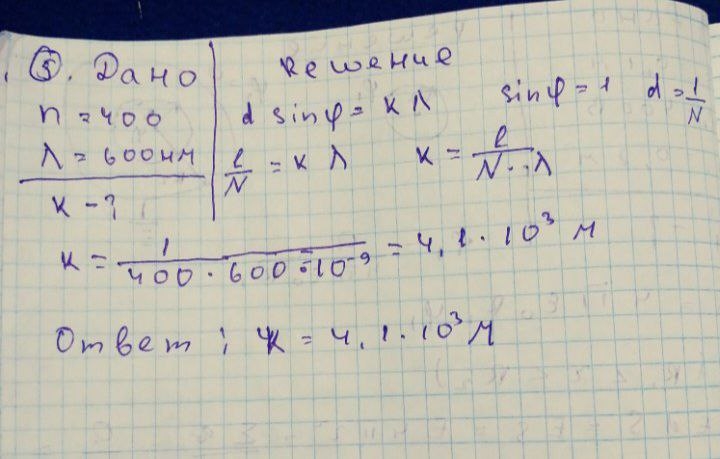 5. Дано
n = 400
λ = 600 нм
K - ?
Решение
d sinφ = K λ
sinφ = 1 d = 1/N
l/N = K λ
K = l/(N · λ)
K = 1/(400 · 600 · 10⁻⁹) = 4,1 · 10³ м
Ответ: K = 4,1 · 10³ м